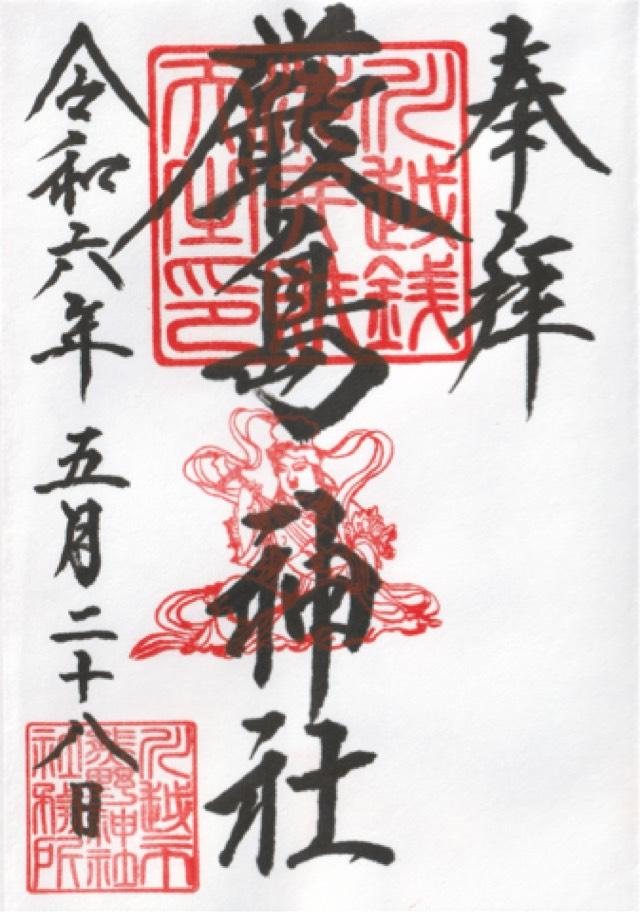 奉拝
川越銭
洗弁財
天之印
厳島神社
令和六年 五月二十八日
川越市
熊野神社
社務所